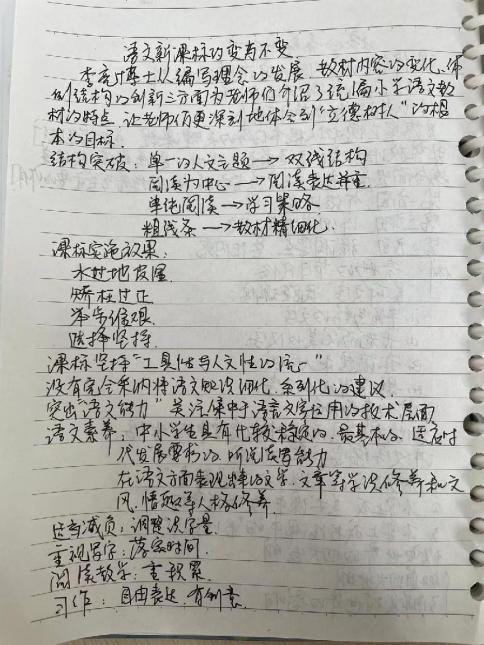 语文新课标的变与不变
李 博士从编写理念的发展、教材内容的变化、体
例结构的创新三方面为老师们介绍了统编小学语文教
材的特点,让老师们更深刻地体会到“立德树人”的根
本的目标.
结构突破:单一的人文主题→双线结构
阅读为中心→阅读表达并重.
单纯阅读→学习策略.
粗线条→教材精细化.
课标实施效果:
水过地皮湿
矫枉过正
举步维艰
选择坚持.
课标坚持“工具性与人文性的统一”
没有完全采纳将语文知识细化、系列化的建议.
突出“语文能力”关注集中于语言文字运用的技术层面
语文素养:中小学生具有比较稳定的、最基本的、适应时
代发展需求的听说读写能力
在语文方面表现出来的文学、文章等学识修养和文
风、情趣等人格修养
适当减负:调整识字量.
重视写字:落实时间.
阅读教学:重积累.
习作:自由表达.有创意.